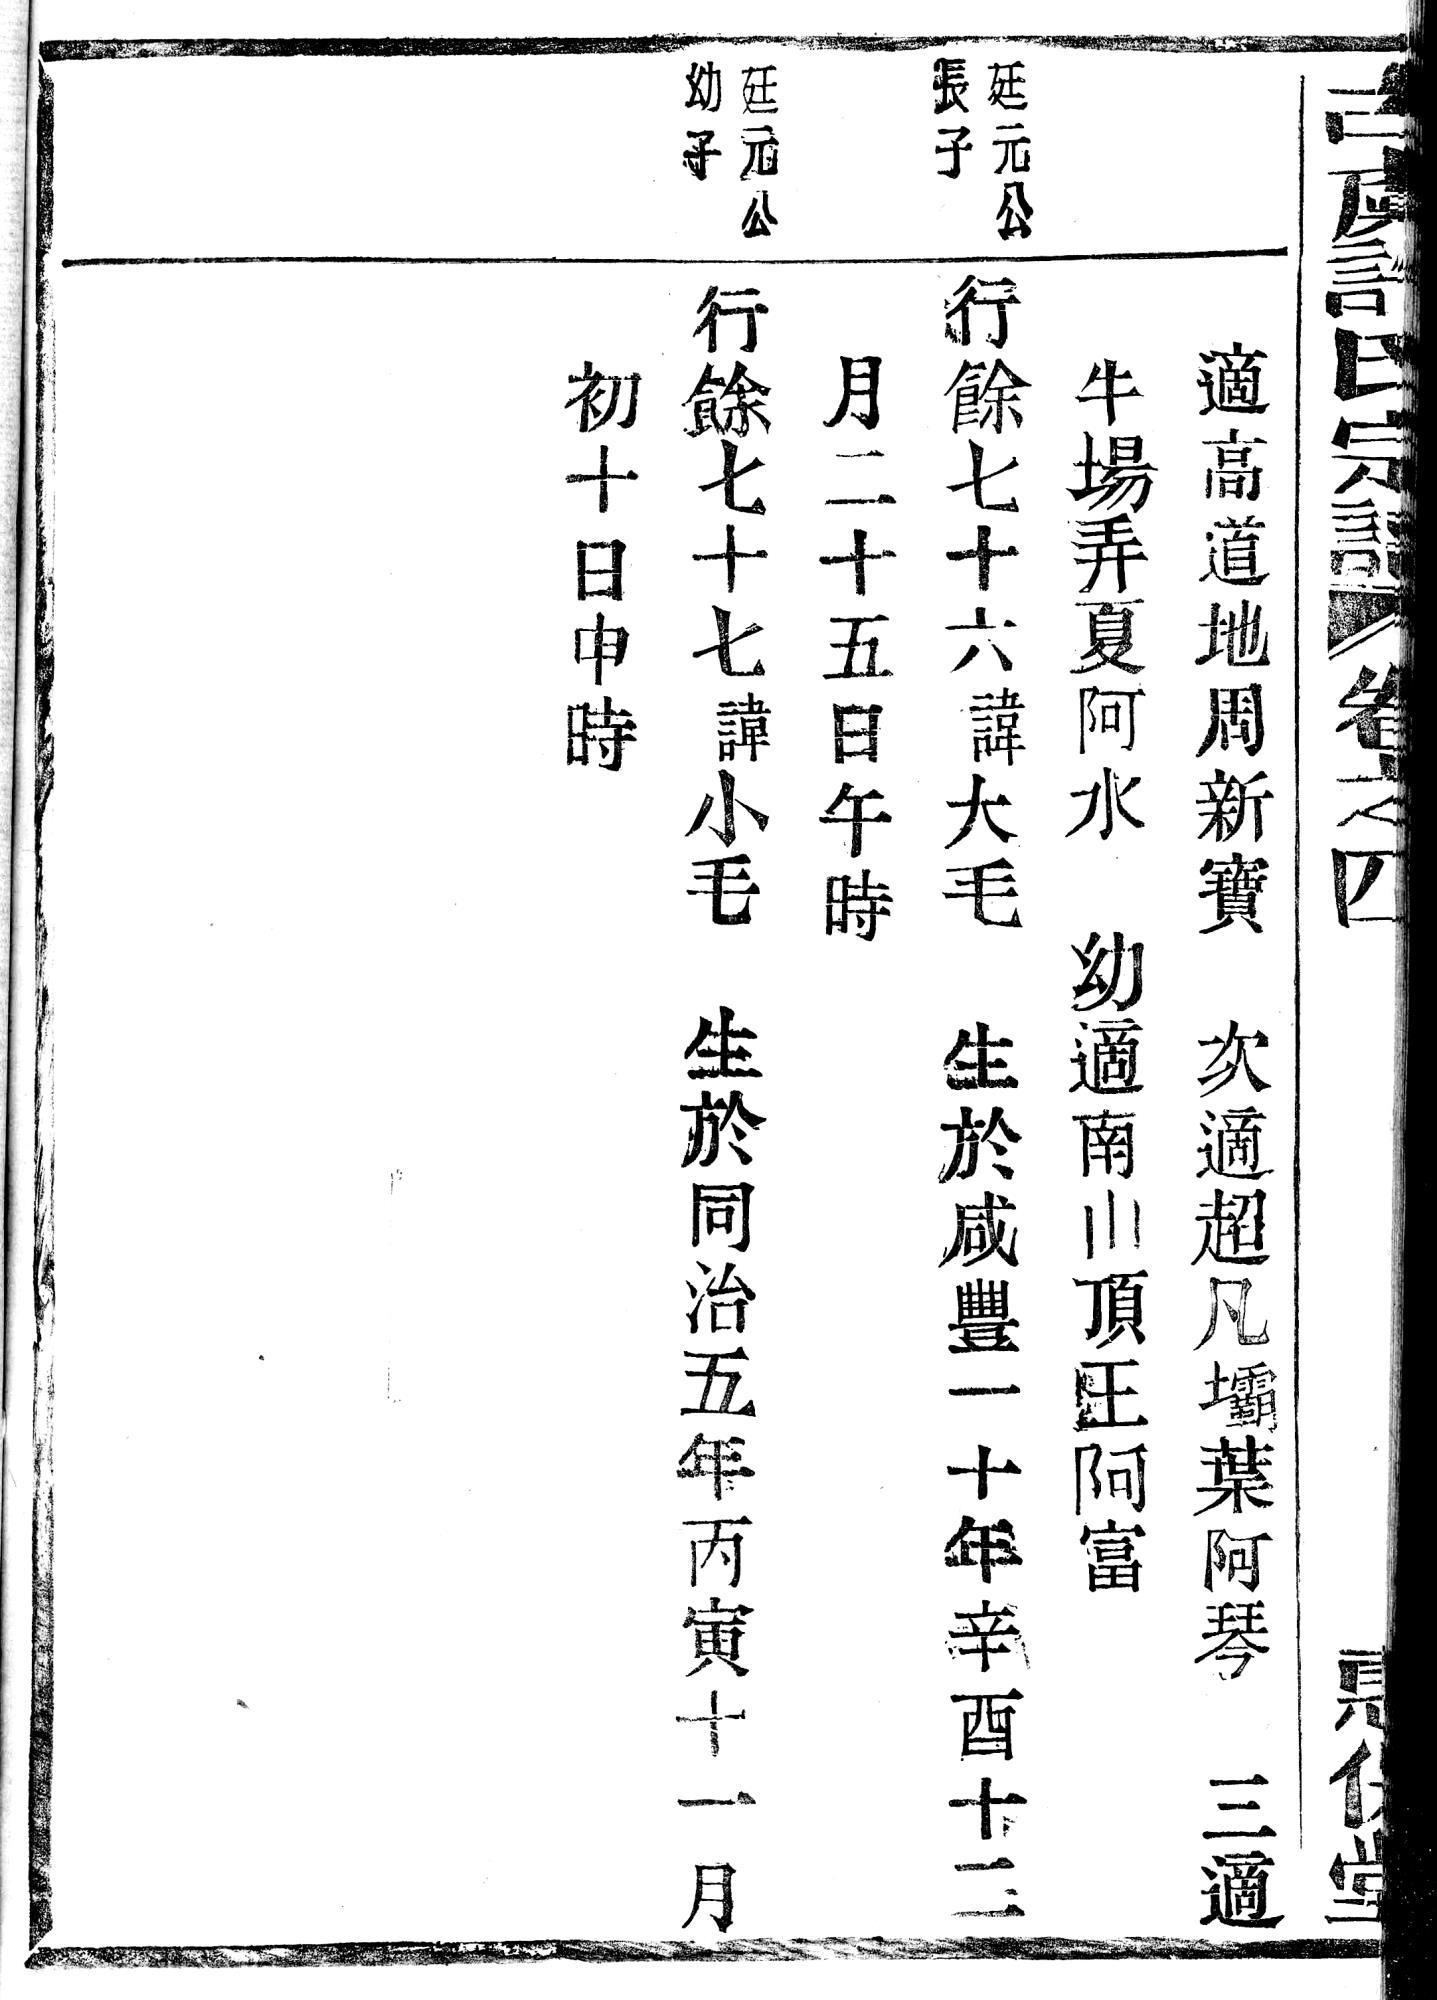 古虞許氏宗譜 卷之四
適高道地周新寶 次適超凡壩葉阿琴 三適
牛場弄夏阿水 幼適南山頂王阿富
廷元公
張子
行餘七十六諱大毛 生於咸豐一十年辛酉十二
月二十五日午時
廷元公
幼子
行餘七十七諱小毛 生於同治五年丙寅十一月
初十日申時